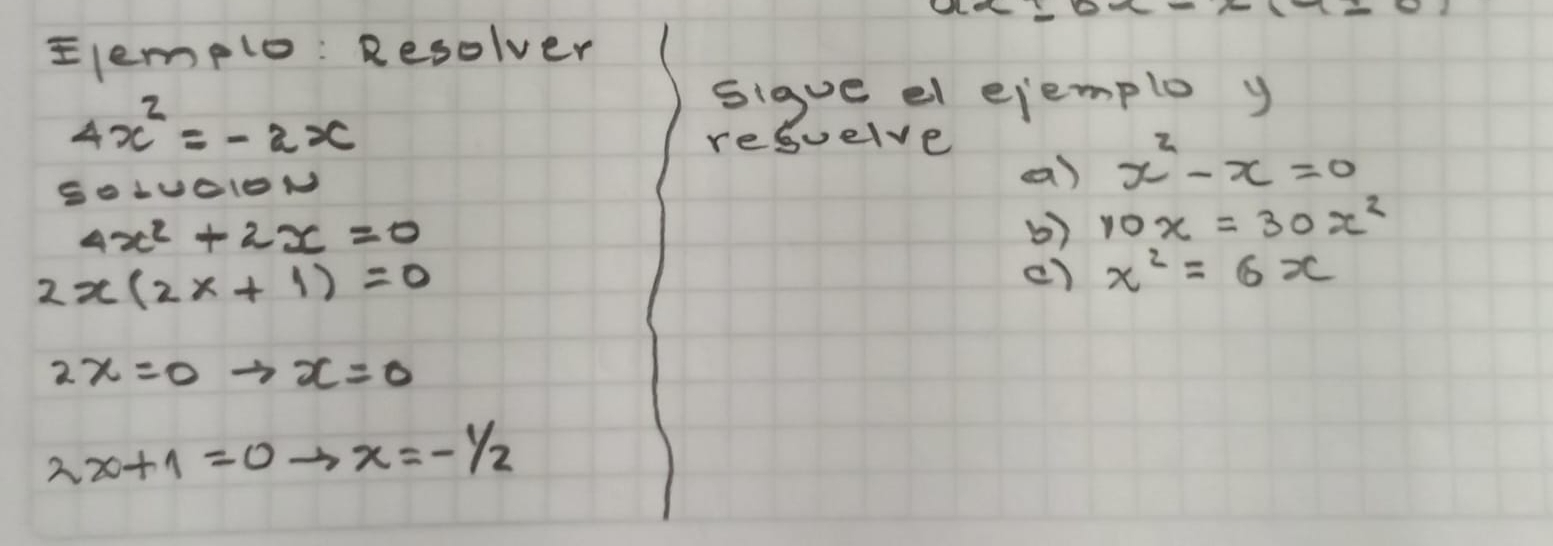 Ejemplo: Resolver
4x² = - 2x
SOLUCION
4x² + 2x = 0
2x(2x + 1) = 0
2x = 0 → x = 0
2x + 1 = 0 → x = - 1/2
Sigue el ejemplo y
resuelve
a) x² - x = 0
b) 10x = 30x²
c) x² = 6x